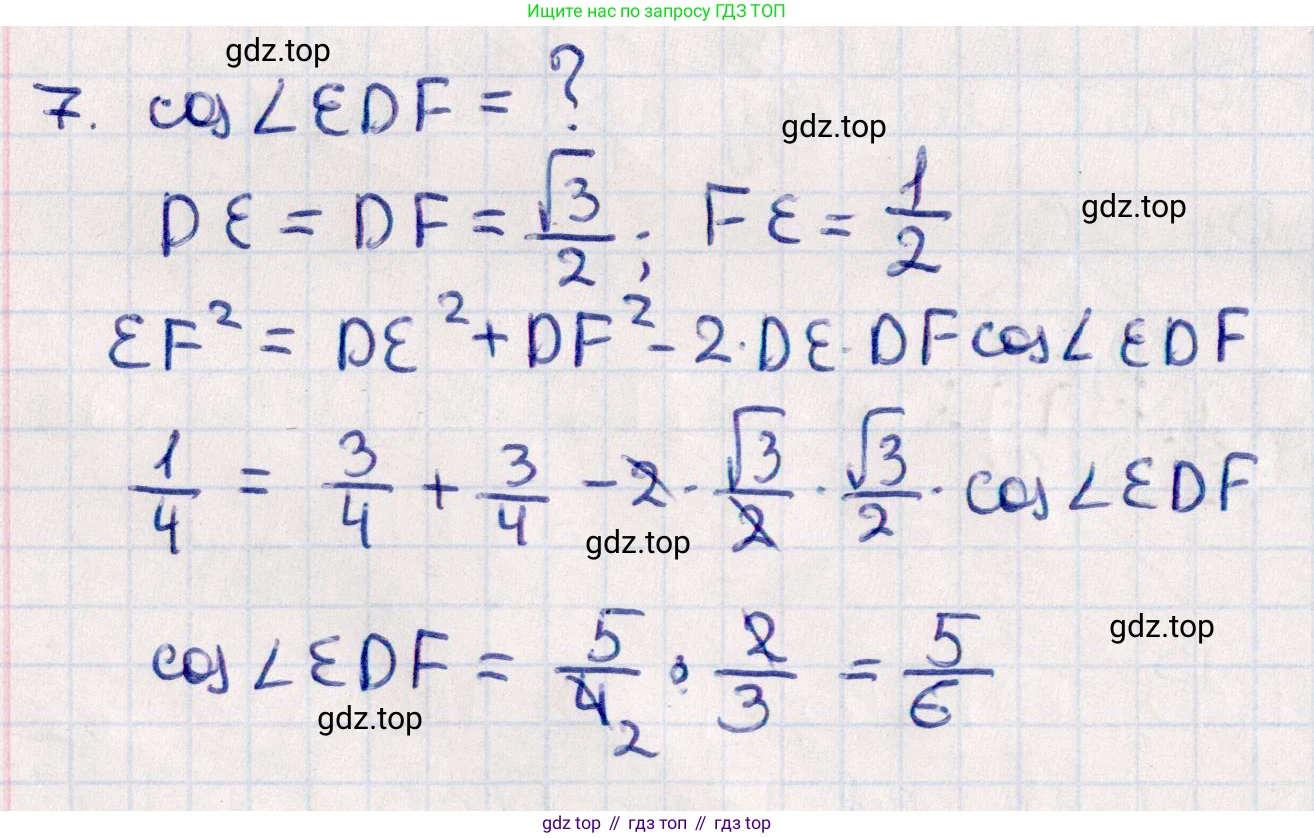 Ищите нас по запросу ГДЗ ТОП
gdz.top
7. cos∠EDF = ?
gdz.top
DE = DF = √3/2; FE = 1/2
gdz.top
EF² = DE² + DF² - 2·DE·DF cos∠EDF
1/4 = 3/4 + 3/4 - 2 · √3/2 · √3/2 · cos∠EDF
gdz.top
cos∠EDF = 5/4 2 · 2/3 = 5/6
gdz.top
gdz.top
gdz top // гдз топ // gdz.top